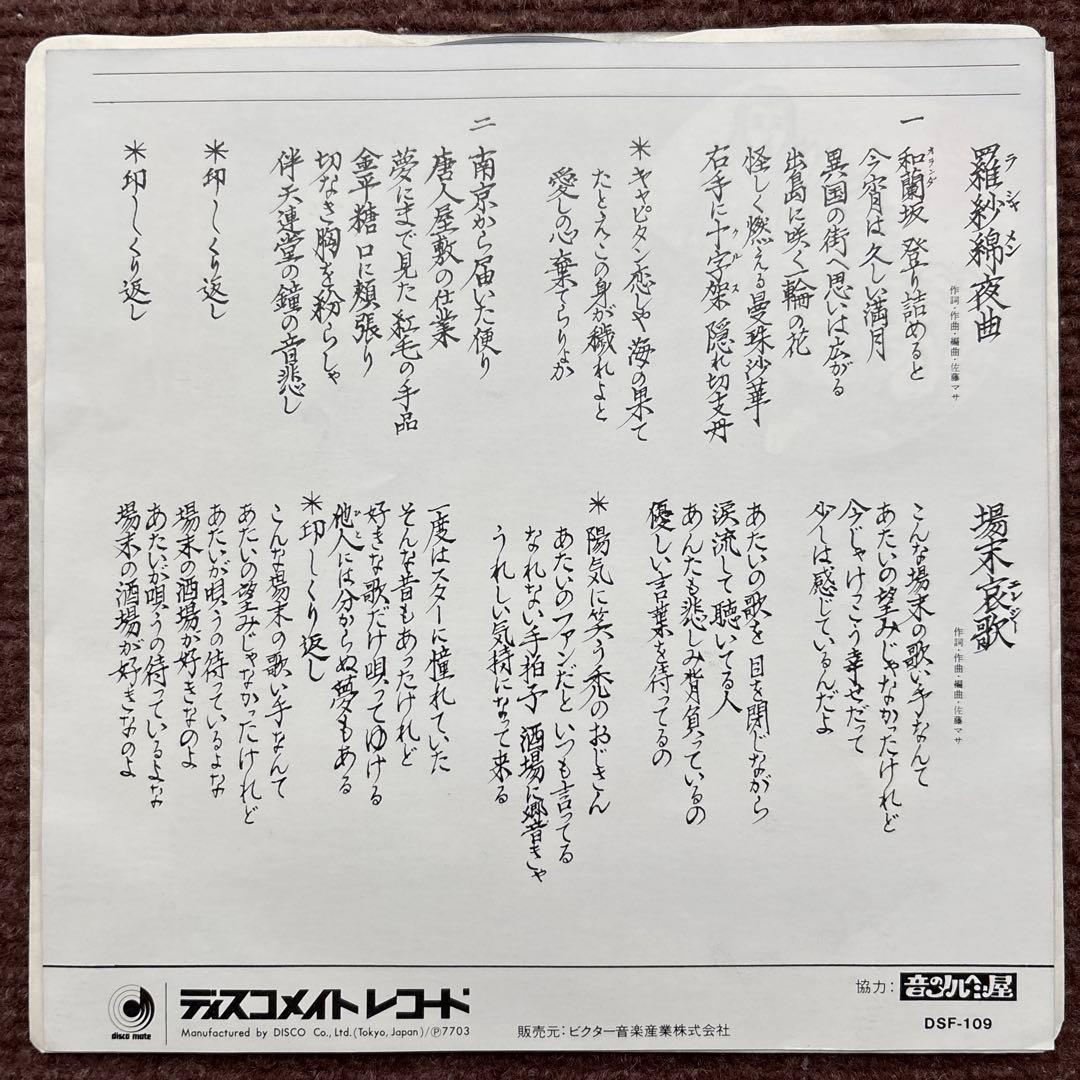 羅紗綿夜曲
ラシャメン
作詞・作曲・編曲・佐藤マサ
一
和蘭坂 登り詰めると
オランダ
今宵は久しい満月
異国の街へ思いは広がる
出島に咲く一輪の花
怪しく燃える曼珠沙華
右手に十字架 隠れ切支丹
クルス
＊キャピタン恋しや海の果て
たとえこの身が穢れよと
愛しの心棄てらりょか
二
南京から届いた便り
唐人屋敷の仕業
夢にまで見た紅毛の手品
金平糖 口に頬張り
切なき胸を粉らしゃ
伴天連堂の鐘の音悲し
＊印〜くり返し
＊印〜くり返し
場末哀歌
エレジー
作詞・作曲・編曲・佐藤マサ
こんな場末の歌い手なんて
あたいの望みじゃなかったけれど
今じゃけっこう幸せだって
少しは感じているんだよ
あたいの歌を 目を閉じながら
涙流して聴いてる人
あんたも悲しみ背負っているの
優しい言葉を待ってるの
＊陽気に笑う禿のおじさん
あたいのファンだと いつも言ってる
なれない手拍子 酒場に響きゃ
うれしい気持になって来る
一度はスターに憧れていた
そんな昔もあったけれど
好きな歌だけ唄ってゆける
他人には分からぬ夢もある
ひと
＊印〜くり返し
こんな場末の歌い手なんて
あたいの望みじゃなかったけれど
あたいが唄うの待っているよな
場末の酒場が好きなのよ
あたいが唄うの待っているよな
場末の酒場が好きなのよ
disco mate
ディスコメイトレコード
Manufactured by DISCO Co., Ltd. (Tokyo, Japan)/Ⓟ7703
販売元：ビクター音楽産業株式会社
協力：
DSF-109